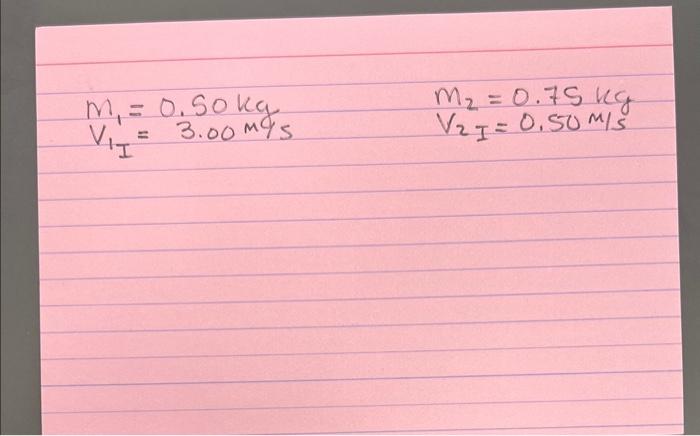 M₁ = 0.50 kg
V₁I = 3.00 m/s
M₂ = 0.75 kg
V₂I = 0.50 m/s